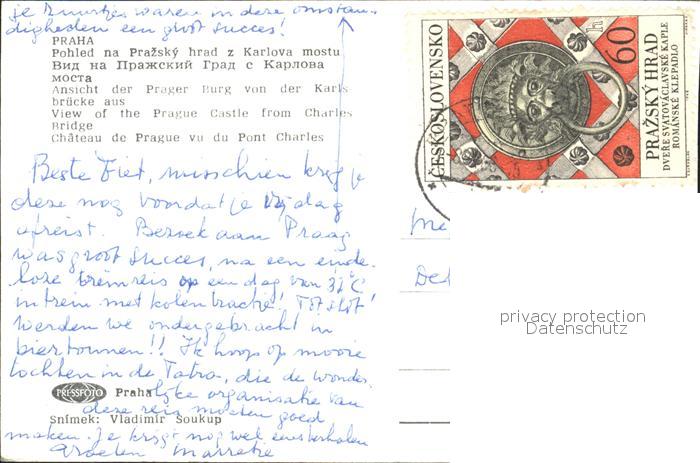 je zuurtjes waren in deze omstan-
digheden een groot succes!
PRAHA
Pohled na Pražský hrad z Karlova mostu
Вид на Пражский Град с Карлова
моста
Ansicht der Prager Burg von der Karls-
brücke aus
View of the Prague Castle from Charles
Bridge
Château de Prague vu du Pont Charles
Beste Fiet, misschien krijg je
deze nog voordat je vrijdag
afreist. Bezoek aan Praag
was groot succes, na een einde-
loze treinreis op een dag van 32°C
in trein met kolentractie! Tot slot
werden we ondergebracht in
biertonnen!! Ik hoop op mooie
tochten in de Tatra, die de wonder-
lijke organisatie van
deze reis moeten goed
maken. Je krijgt nog wel eens verhalen
Groeten
PRESSFOTO
Praha
Snímek: Vladimír Soukup
ČESKOSLOVENSKO
60
h
PRAŽSKÝ HRAD
DVEŘE SVATOVÁCLAVSKÉ KAPLE
ROMÁNSKÉ KLEPADLO
privacy protection
Datenschutz